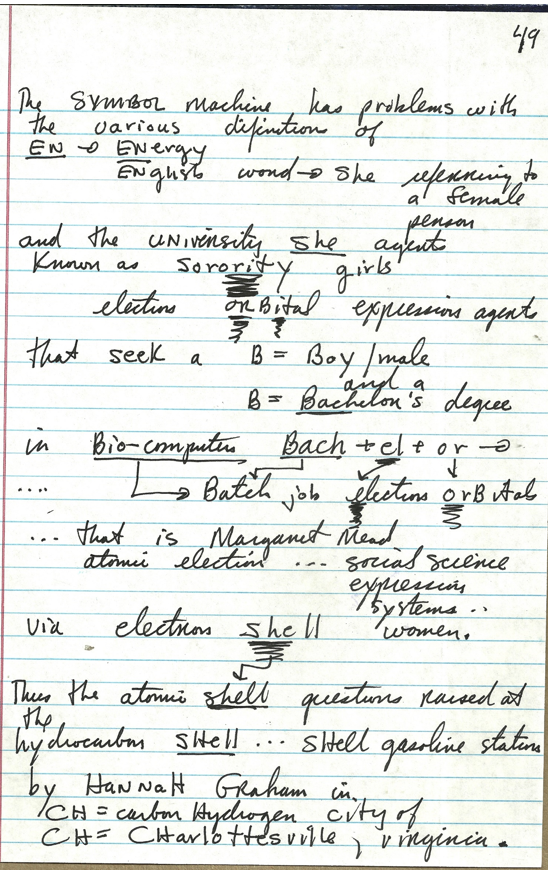 49
The SYMBOL machine has problems with
the various definitions of
EN → ENergy
ENglish word → she referring to
a female
person
and the UNIVERSITY she agents
known as sorority girls
electron orBital expression agents
that seek a B = Boy/male
and a
B = Bachelor's degree
in Bio-computers Bach + el + or →
.... → Batch job electrons orBitals
... that is Margaret Mead
atomic election ... social science
expression
systems ..
via electrons shell women.
Thus the atomic shell questions raised at
the
hydrocarbon SHell ... SHell gasoline station
by HANNAH Graham in
CH = carbon Hydrogen city of
CH = CHarlottesville, virginia.